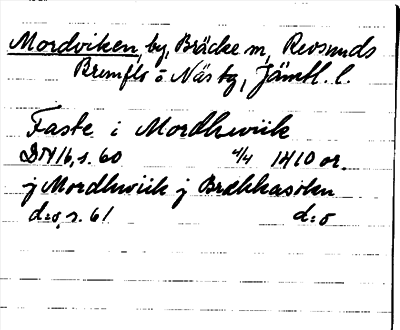 Mordviken, by, Bräcke m, Revsunds
Brunflo o Näs tg, Jämtl. l.
Faste i Mordhwiik
DN 16, s. 60 4/4 1410 or.
j Mordhwiik j Brækkasokn
d:o, s. 61 d:o